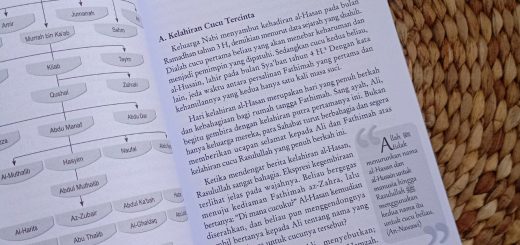 Jumanah
Amir
Murrah bin Ka'ab
Sahm
Kilab
Taym
Qushai
Zahrah
Abdu Manaf
Abdu Dar
Al-Muthalib
Hasyim
Naufal
Abdul Muthalib
Az-Zubair
Al-Harits
Abu Thalib
Al-Ghaidaq
A. Kelahiran Cucu Tercinta
Keluarga Nabi menyambut kehadiran al-Hasan pada bulan
Ramadhan tahun 3 H, demikian menurut data sejarah yang shahih.
Dialah cucu pertama beliau yang akan menebar kehormatan dan
menjadi pemimpin yang dipatuhi. Sedangkan cucu kedua beliau,
al-Husain, lahir pada bulan Sya'ban tahun 4 H. Dengan kata
lain, jeda waktu antara persalinan Fathimah yang pertama dan
kehamilannya yang kedua hanya satu kali masa suci.
Hari kelahiran al-Hasan merupakan hari yang penuh berkah
dan kebahagiaan bagi rumah tangga Fathimah. Sang ayah, Ali,
begitu gembira dengan kelahiran putra pertamanya ini. Bukan
hanya keluarga mereka, para Sahabat turut berbahagia dan segera
memberikan ucapan selamat kepada Ali dan Fathimah atas
kelahiran cucu Rasulullah yang penuh berkah ini.
Ketika mendengar berita kelahiran al-Hasan,
Rasulullah sangat bahagia. Ekspresi kegembiraan
terlihat jelas pada wajahnya. Beliau bergegas
menuju kediaman Fathimah az-Zahra, lalu
bertanya: "Di mana cucuku?" Al-Hasan kemudian
diserahkan, dan beliau pun menggendongnya
bertanya kepada Ali tentang nama yang
untuk cucunya tersebut?
Ali menyebutkan;
Allah ﷻ
menurunkan nama
al-Hasan dan
al-Husain untuk
manusia hingga
Rasulullah ﷺ
menggunakan
kedua nama itu
untuk cucu beliau.
(An-Nawawi)